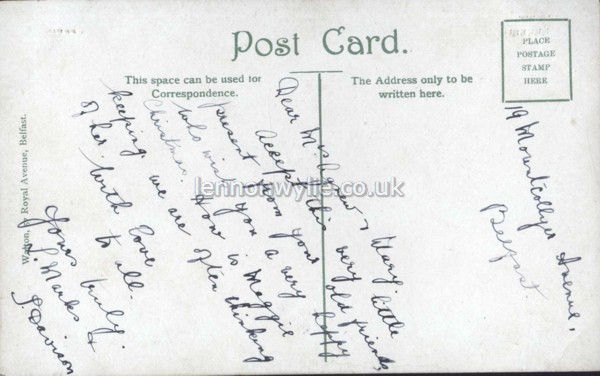 Post Card.
This space can be used for
Correspondence.
The Address only to be
written here.
PLACE
POSTAGE
STAMP
HERE
Royal Avenue, Belfast.
lennonwylie.co.uk
Dear Mrs Agnew & Mary. little
Accept this very
present from your old friends,
who wish you a very happy
Christmas. How is Maggie
keeping. we are often thinking
of her. With love
to all.
Yours truly.
S. Marks &
S. Davison
19 Mountcollyer Avenue,
Belfast.